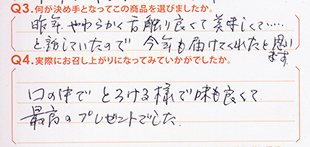 Q3.何が決め手となってこの商品を選びましたか。
昨年、やわらかく舌触り良くて美味しくて.....
と話していたので 今年も届けてくれたと思い
ます
Q4.実際にお召し上がりになってみていかがでしたか。
口の中で とろける様で味も良くて
最高のプレゼントでした.